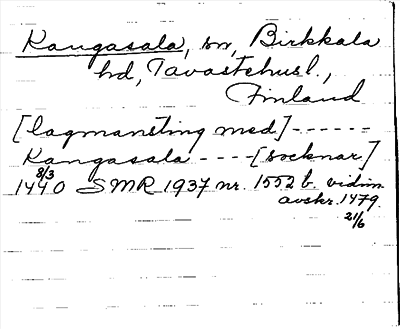 Kangasala, sn, Birkkala
hd, Tavastehusl.,
Finland
[lagmansting med] - - - - - -
Kangasala - - - - [socknar]
8/3
1440 SMR 1937 nr. 1552 b. vidim.
avskr. 1479
21/6